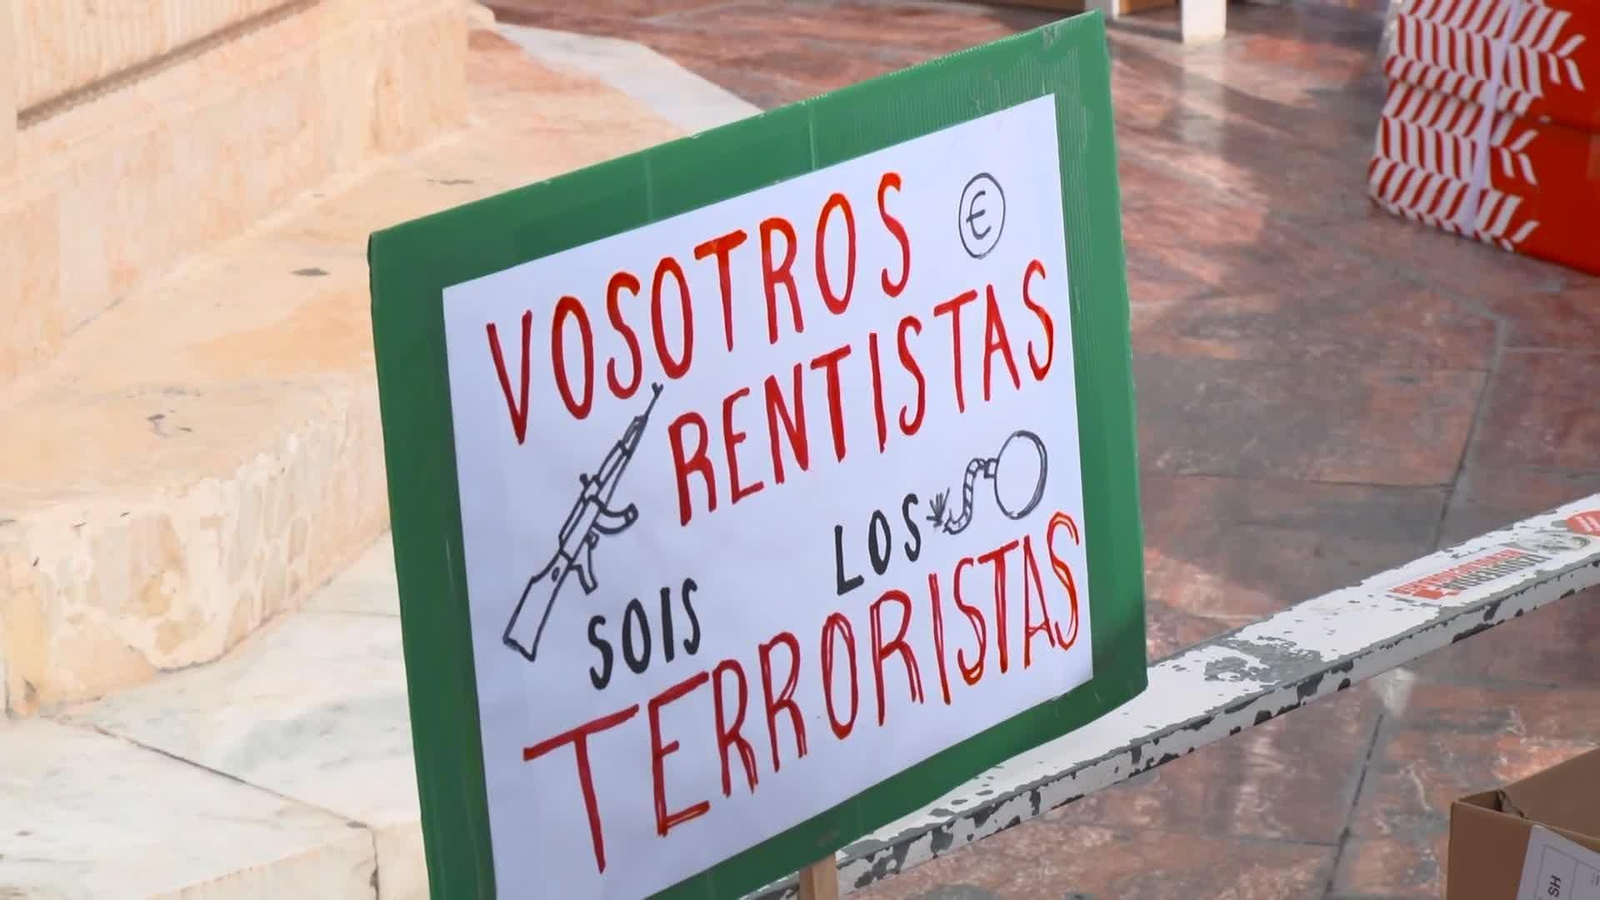 VOSOTROS €
RENTISTAS
SOIS LOS
TERRORISTAS
SH